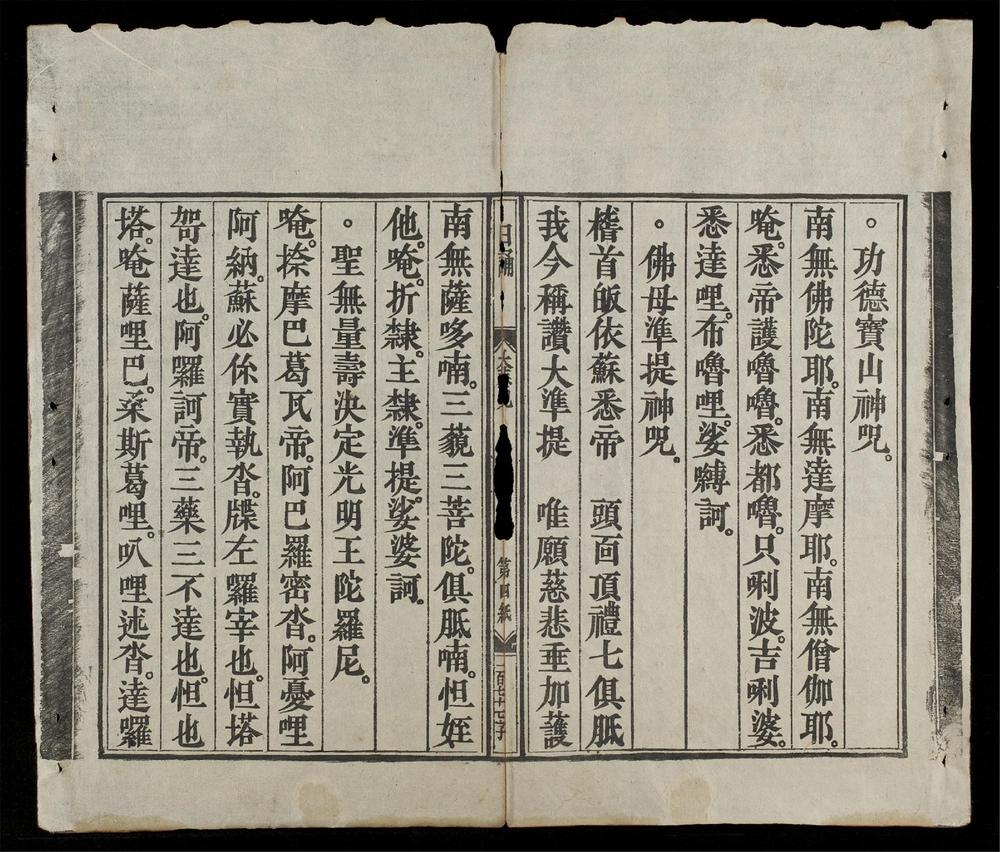 。功德寶山神咒。
南無佛陀耶。南無達摩耶。南無僧伽耶。
唵。悉帝護嚕嚕。悉都嚕。只唎波。吉唎婆。
悉達哩。布嚕哩。娑嚩訶。
。佛母準提神咒。
稽首皈依蘇悉帝　頭面頂禮七俱胝
我今稱讚大準提　唯願慈悲垂加護
日誦
第四紙
南無薩哆喃。三藐三菩陀。俱胝喃。怛姪
他。唵。折隸。主隸。準提。娑婆訶。
。聖無量壽決定光明王陀羅尼。
唵。捺摩巴葛瓦帝。阿巴羅密沓。阿憂哩
阿納。蘇必你實執沓。牒左囉宰也。怛塔
哿達也。阿囉訶帝。三藥三不達也。怛也
塔。唵薩哩巴。桑斯葛哩。叭哩述沓。達囉